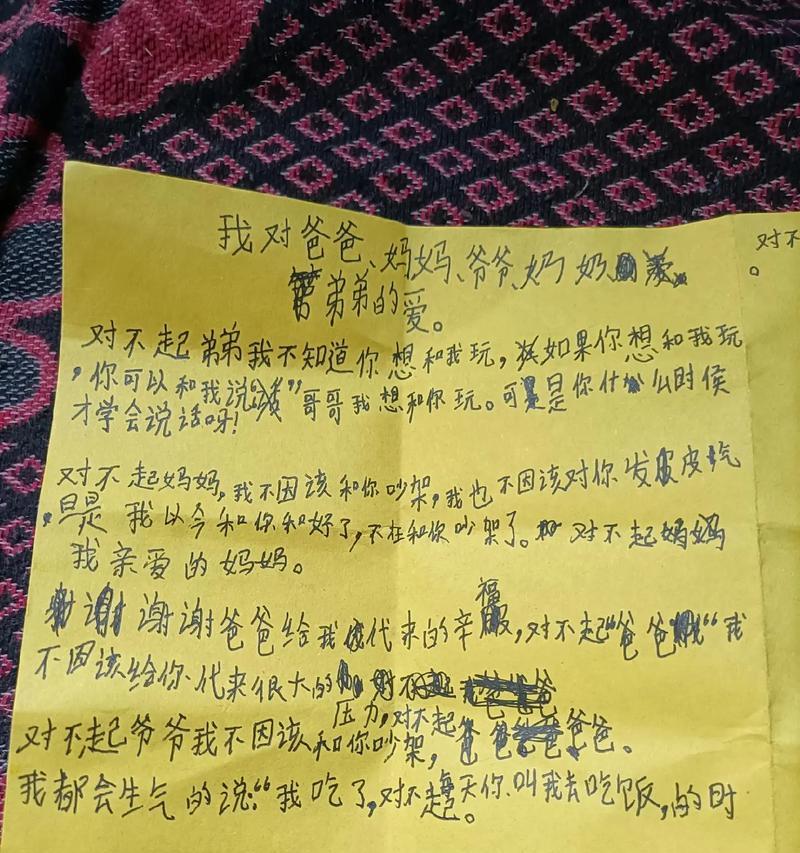 我对爸爸、妈妈、爷爷、奶奶
弟弟的爱。
对不
。
对不起弟弟我不知道你想和我玩，如果你想和我玩
，你可以和我说“哥哥我想和你玩。可是你什么时候
才学会说话呀！
对不起妈妈，我不因该和你吵架，我也不因该对你发皮气
，旦是 我以今和你和好了，不在和你吵架了。对不起妈妈
我亲爱的妈妈。
谢谢爸爸给我代来的辛福，对不起“爸爸“我
不因该给你代来很大的
压力，对不起爸爸爸爸。
对不起爷爷我不因该和你吵架，
我都会生气的说：“我吃了，对不起。每天你叫我去吃饭，的时